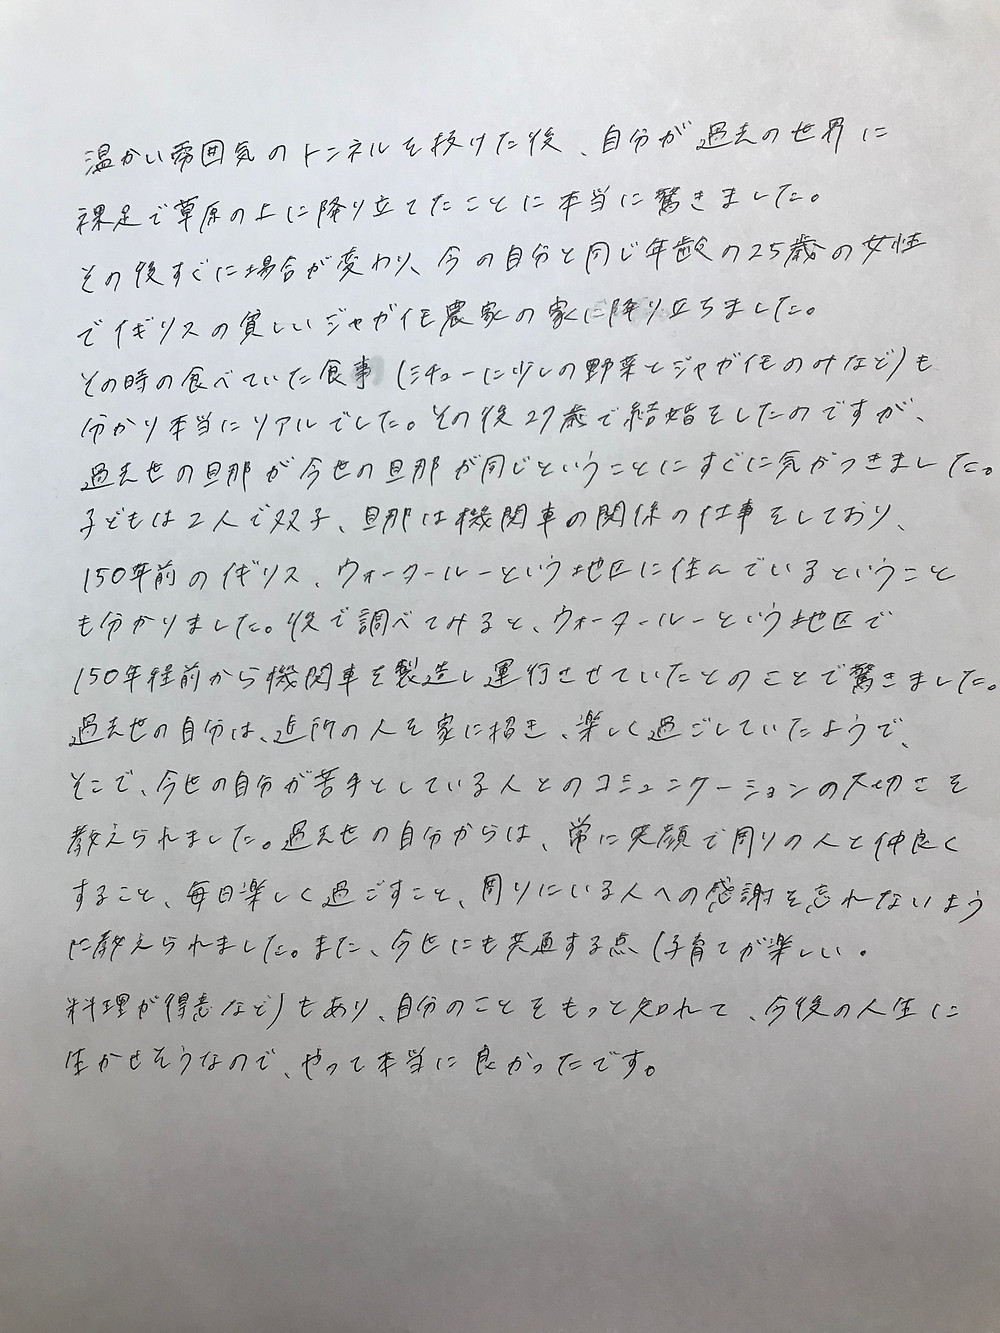 温かい雰囲気のトンネルを抜けた後、自分が過去の世界に
裸足で草原の上に降り立てたことに本当に驚きました。
その後すぐに場合が変わり、今の自分と同じ年齢の25歳の女性
でイギリスの貧しいジャガイモ農家の家に降り立ちました。
その時の食べていた食事(シチューに少しの野菜とジャガイモのみなど)も
分かり本当にリアルでした。その後27歳で結婚をしたのですが、
過去世の旦那が今世の旦那が同じということにすぐに気がつきました。
子どもは2人で双子、旦那は機関車の関係の仕事をしており、
150年前のイギリス、ウォータールーという地区に住んでいるということ
も分かりました。後で調べてみると、ウォータールーという地区で
150年程前から機関車を製造し運行させていたとのことで驚きました。
過去世の自分は、近所の人を家に招き、楽しく過ごしていたようで、
そこで、今世の自分が苦手としている人とのコミュニケーションの大切さを
教えられました。過去世の自分からは、常に笑顔で周りの人と仲良く
すること、毎日楽しく過ごすこと、周りにいる人への感謝を忘れないよう
に教えられました。また、今世にも共通する点(子育てが楽しい。
料理が得意など)もあり、自分のことをもっと知れて、今後の人生に
生かせそうなので、やって本当に良かったです。